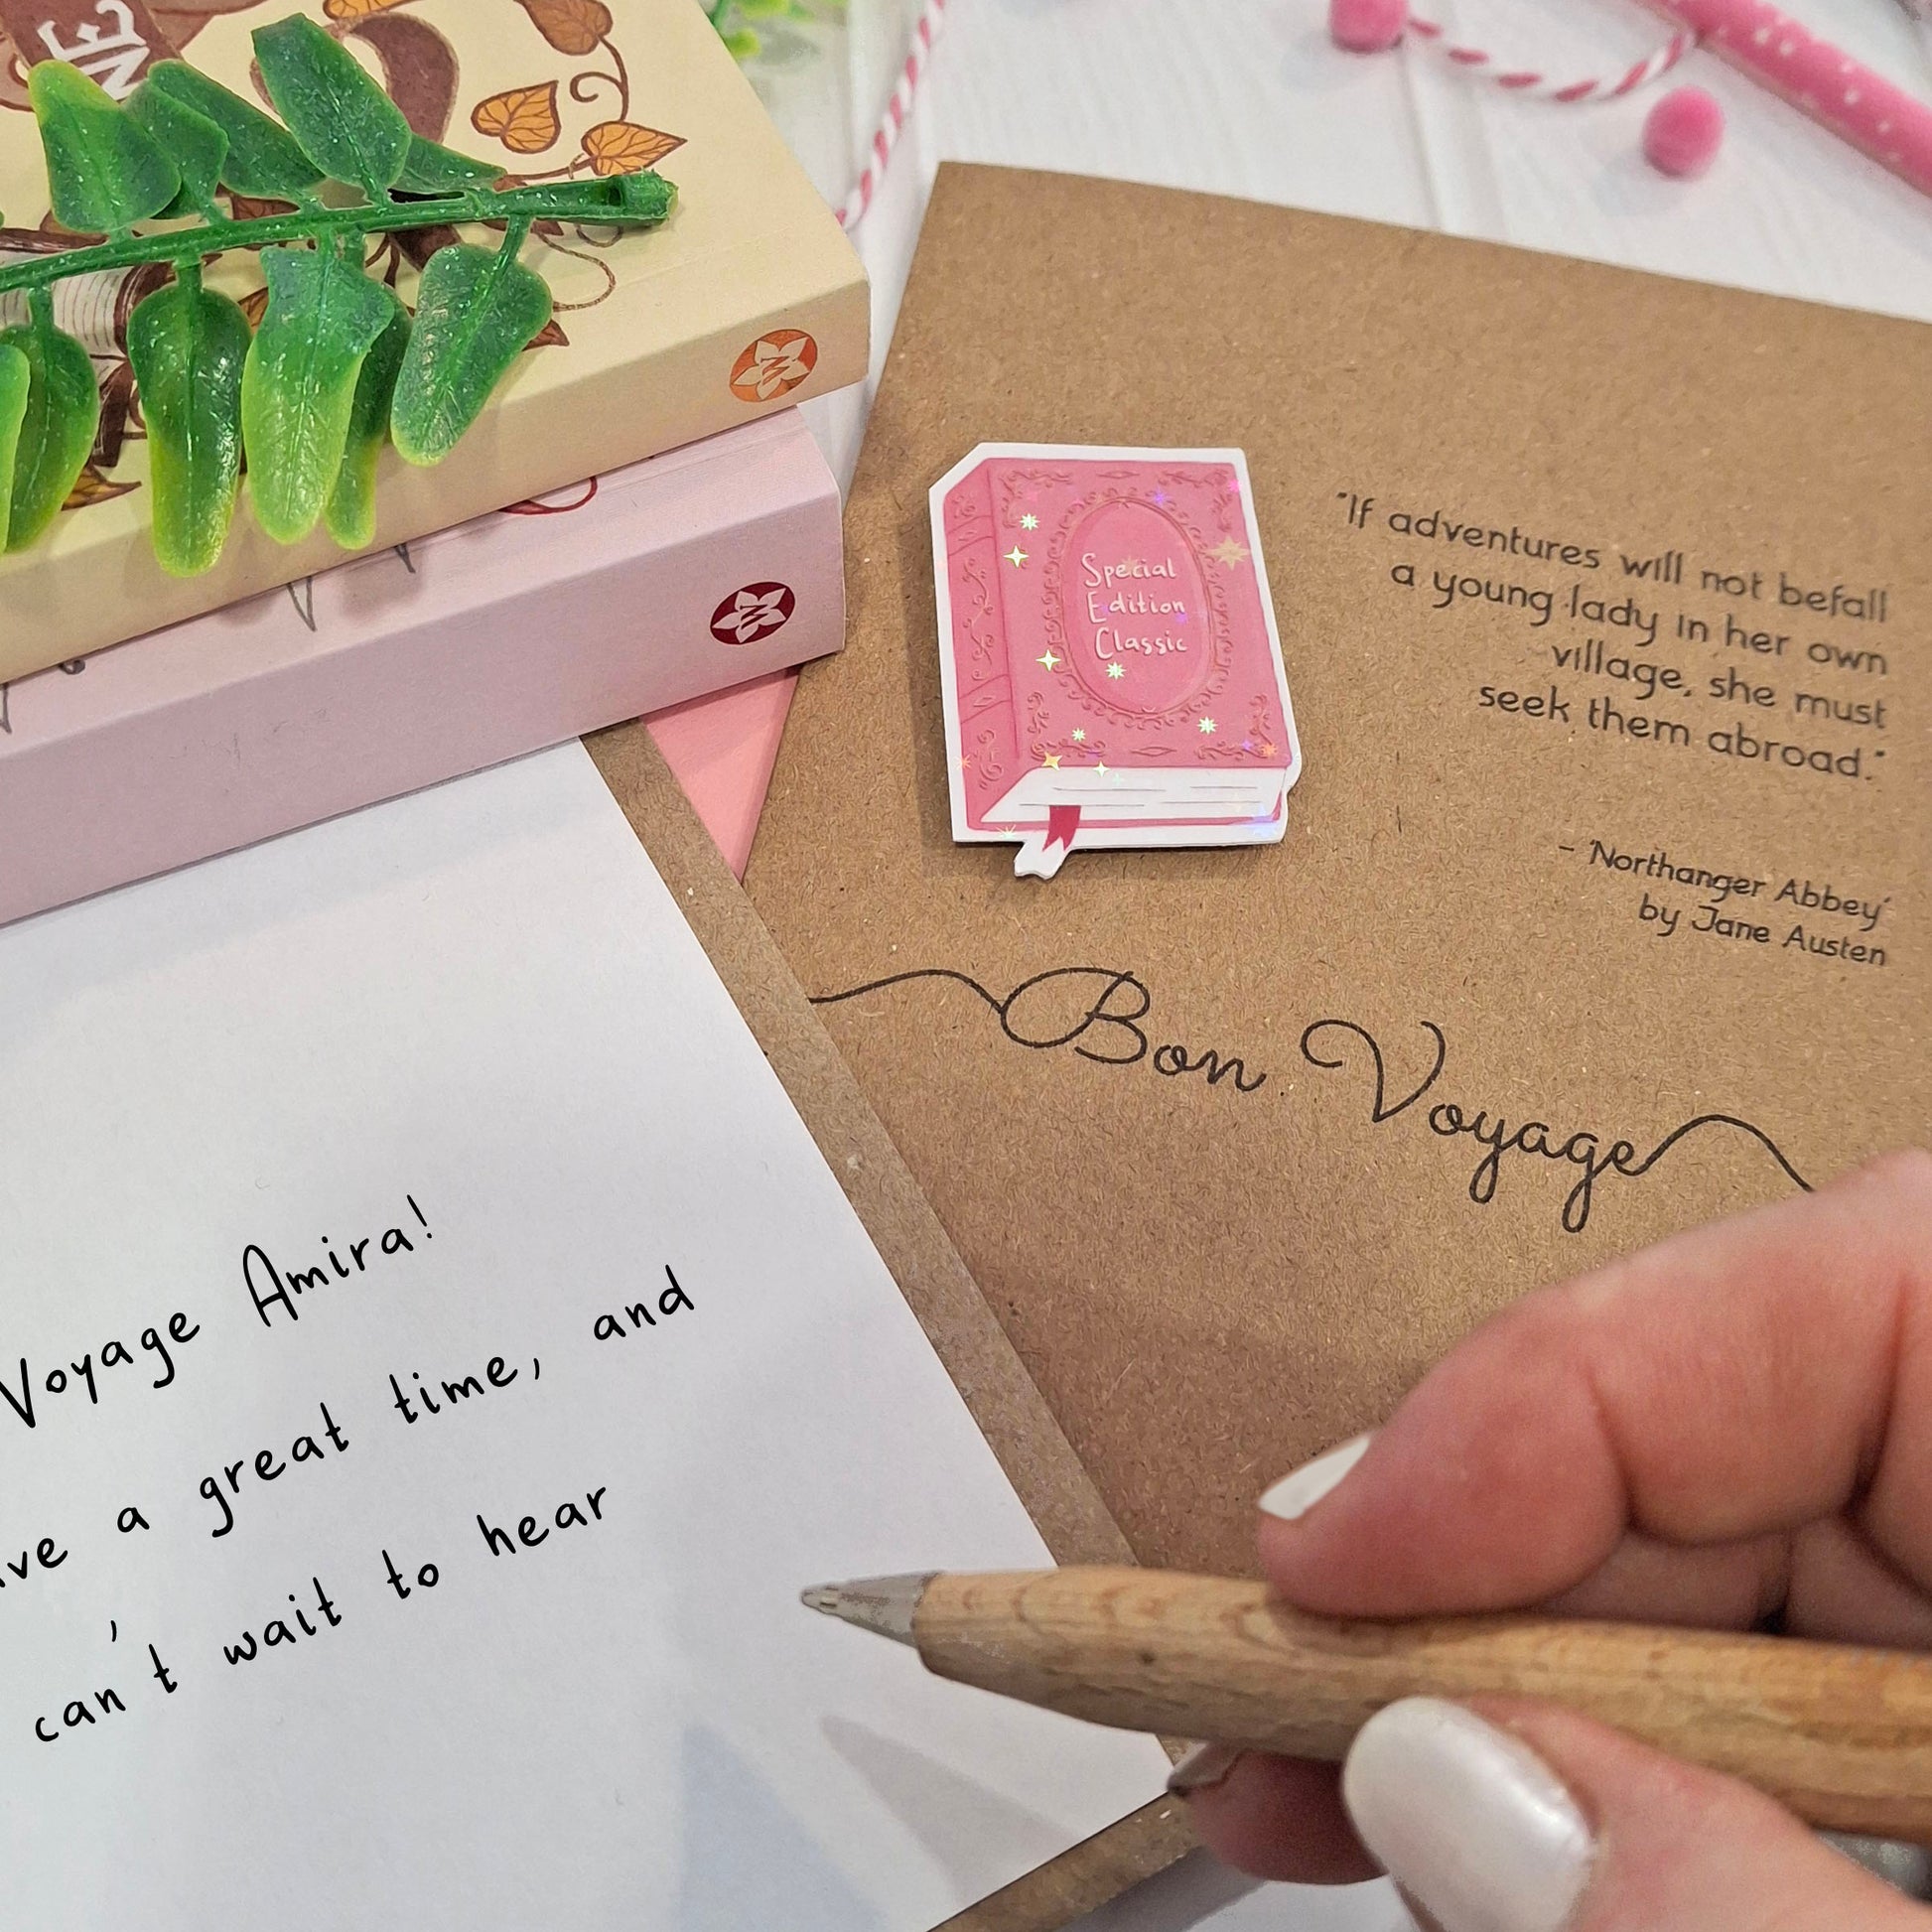 Special
Edition
Classic
"If adventures will not befall
a young lady in her own
village, she must
seek them abroad."
- 'Northanger Abbey'
by Jane Austen
Bon Voyage
Voyage Amira!
a great time, and
can't wait to hear